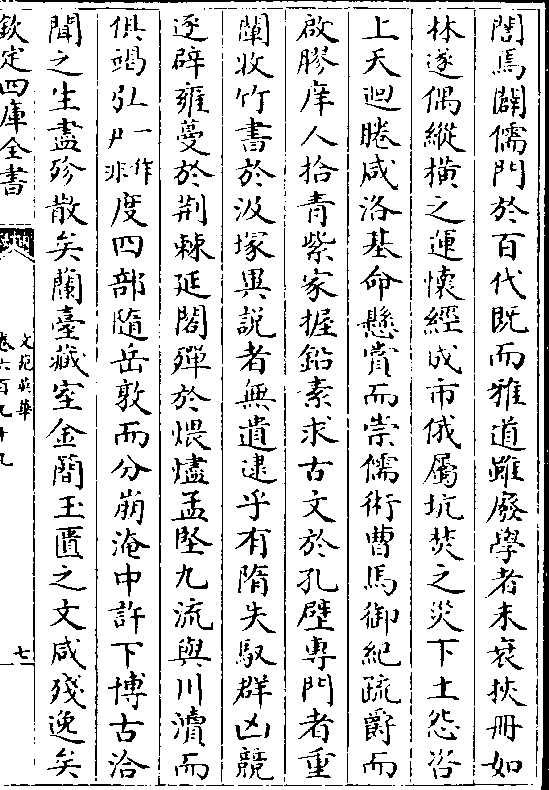 誾焉闢儒門於百代既而雅道雖廢學者未衰挾冊如
林遂偶縱横之運懷經成市俄屬坑焚之災下土怨咨
上天迴睠咸洛基命懸賞而崇儒術曹馬御紀疏爵而
啟膠庠人拾青紫家握鉛素求古文於孔壁專門者重
闡收竹書於汲塚異說者無遺逮乎有隋失馭群凶競
逐辟雍蔓於荆棘延閣殫於煨燼孟堅九流與川瀆而
俱竭弘一作尹非度四部隨岳敦而分崩淹中許下博古洽
聞之生盡殄散矣蘭臺藏室金蕳玉匱之文咸殘逸矣
欽定四庫全書
文苑英華
卷六百九十九
七